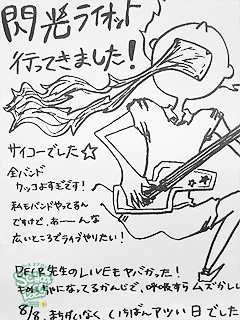 閃光ライオット
行ってきました!
サイコーでした☆
全バンド
カッコよすぎです!
私もバンドやってるん
ですけど、あーーんな
広いところでライブやりたい!
先生のLIVEもヤバかった!
になってるかんじで、呼吸すら ムズかしい
8/8、まちがいなく いちばんアツい日でした